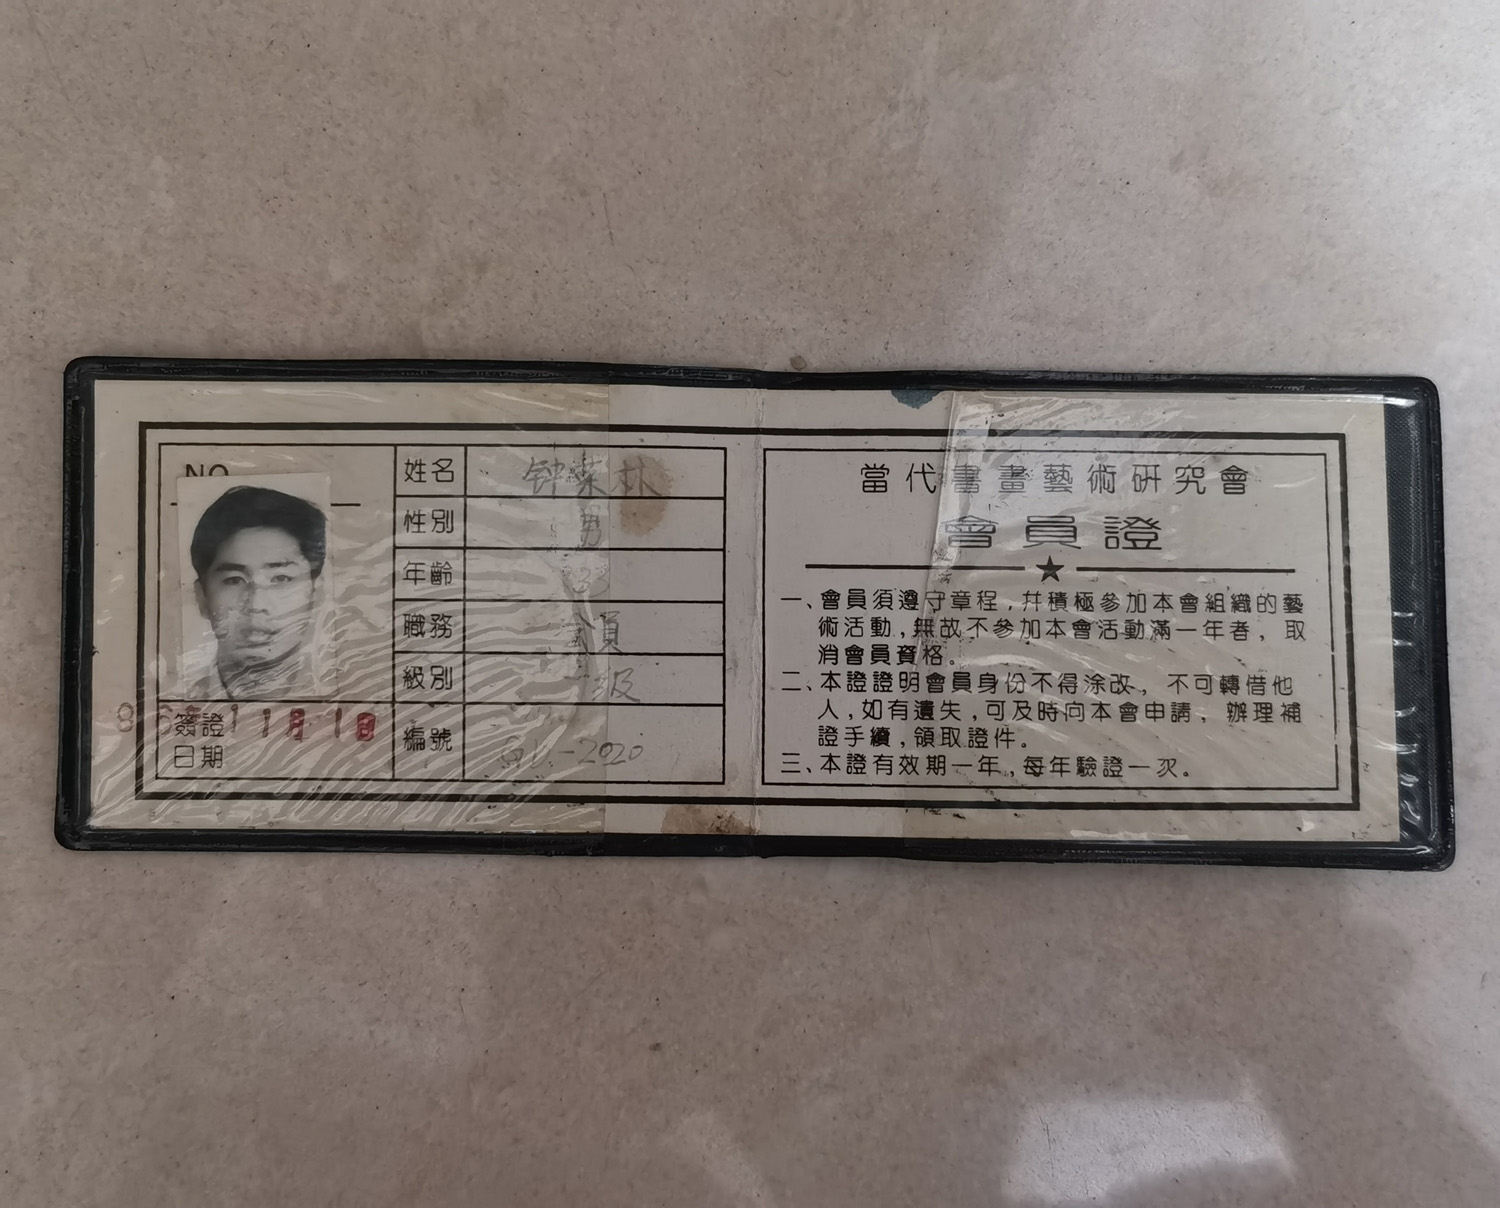 NO
姓名 钟荣林
性別 男
年齡
職務 會員
級別 級
編號 -2020
簽證
日期
當代書畫藝術研究會
會員證
一、會員須遵守章程,幷積極參加本會組織的藝
術活動,無故不參加本會活動滿一年者,取
消會員資格。
二、本證證明會員身份不得涂改,不可轉借他
人,如有遺失,可及時向本會申請,辦理補
證手續,領取證件。
三、本證有效期一年,每年驗證一次。